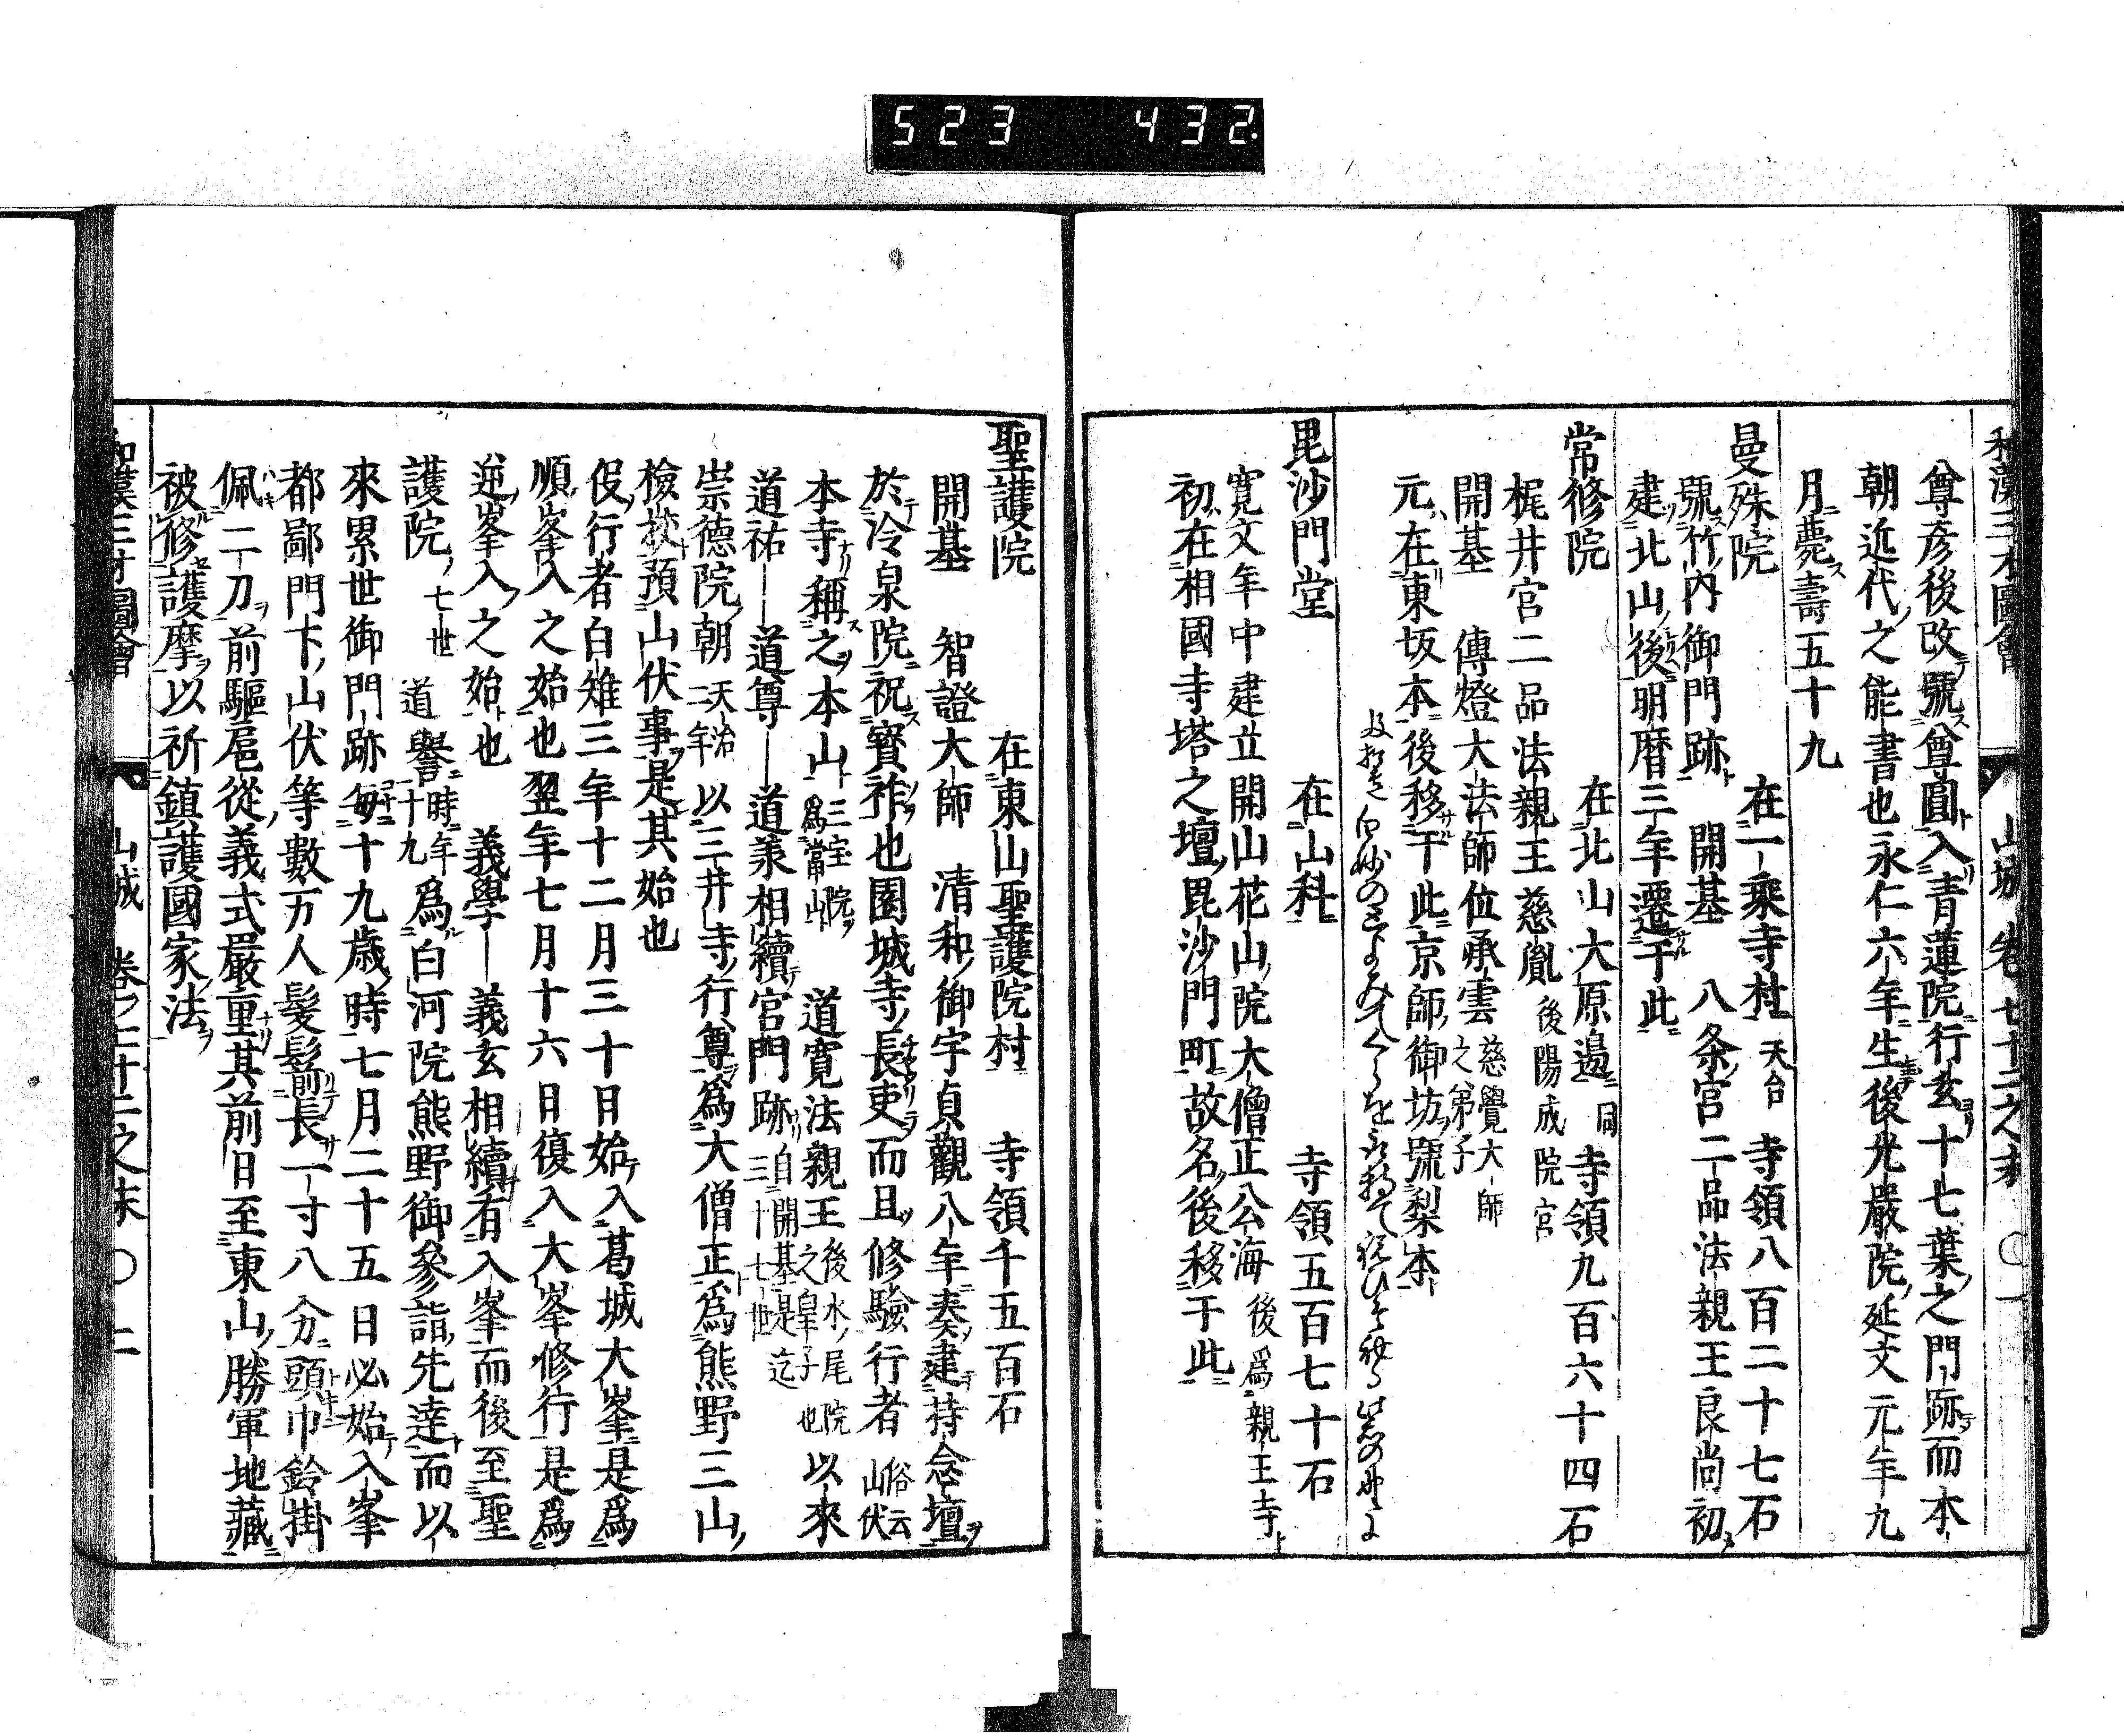 523 432
和漢三才圖會 山城 卷七十二之末 〇一
尊彦後改號尊圓入青蓮院行玄十七葉之門跡而本
朝近代之能書也永仁六年生後光嚴院延文元年九
月薨壽五十九
曼殊院 在一乘寺村 天台 寺領八百二十七石
號竹内御門跡 開基 八条宮二品法親王良尚初
建北山後明暦三年遷于此
常修院 在北山大原邊 同 寺領九百六十四石
梶井宮二品法親王慈胤 後陽成院宮
開基 傳燈大法師位承雲 慈覺大師之弟子
元在東坂本後移于此京師御坊號梨本
毘沙門堂 在山科 寺領五百七十石
寛文年中建立開山花山院大僧正公海 後爲親王寺
初在相國寺塔之壇毘沙門町故名後移于此
聖護院 在東山聖護院村 寺領千五百石
開基 智證大師 清和御宇貞觀八年奏建持念壇
於冷泉院祝寳祚也園城寺長吏而且修驗行者 俗云山伏
本寺稱之本山 三宝院爲當山 道寛法親王 後水尾院之皇子也 以來
道祐—道尊—道羕相續宮門跡 自開基是迄三十七世
崇德院朝 天治二年 以三井寺行尊爲大僧正爲熊野三山
檢挍預山伏事是其始也
役行者白雉三年十二月三十日始入葛城大峯是爲
順峯入之始也翌年七月十六日復入大峯修行是爲
逆峯入之始也 義學—義玄相續有入峯而後至聖
護院 七世 道譽 時年二十九 爲白河院熊野御參詣先達而以
來累世御門跡毎十九歳時七月二十五日必始入峯
都鄙門下山伏等數万人髮髻前長一寸八分頭巾鈴掛
佩二刀前驅扈從義式嚴重其前日至東山勝軍地藏
被修護摩以祈鎮護國家法
和漢三才圖會 山城 卷ノ七十二之末 〇二